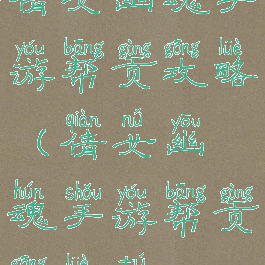 yóu bāng gòng gōng lüè
游帮贡攻略
qiàn nǚ yōu
（倩女幽
hún shǒu yóu bāng gòng
魂手游帮贡